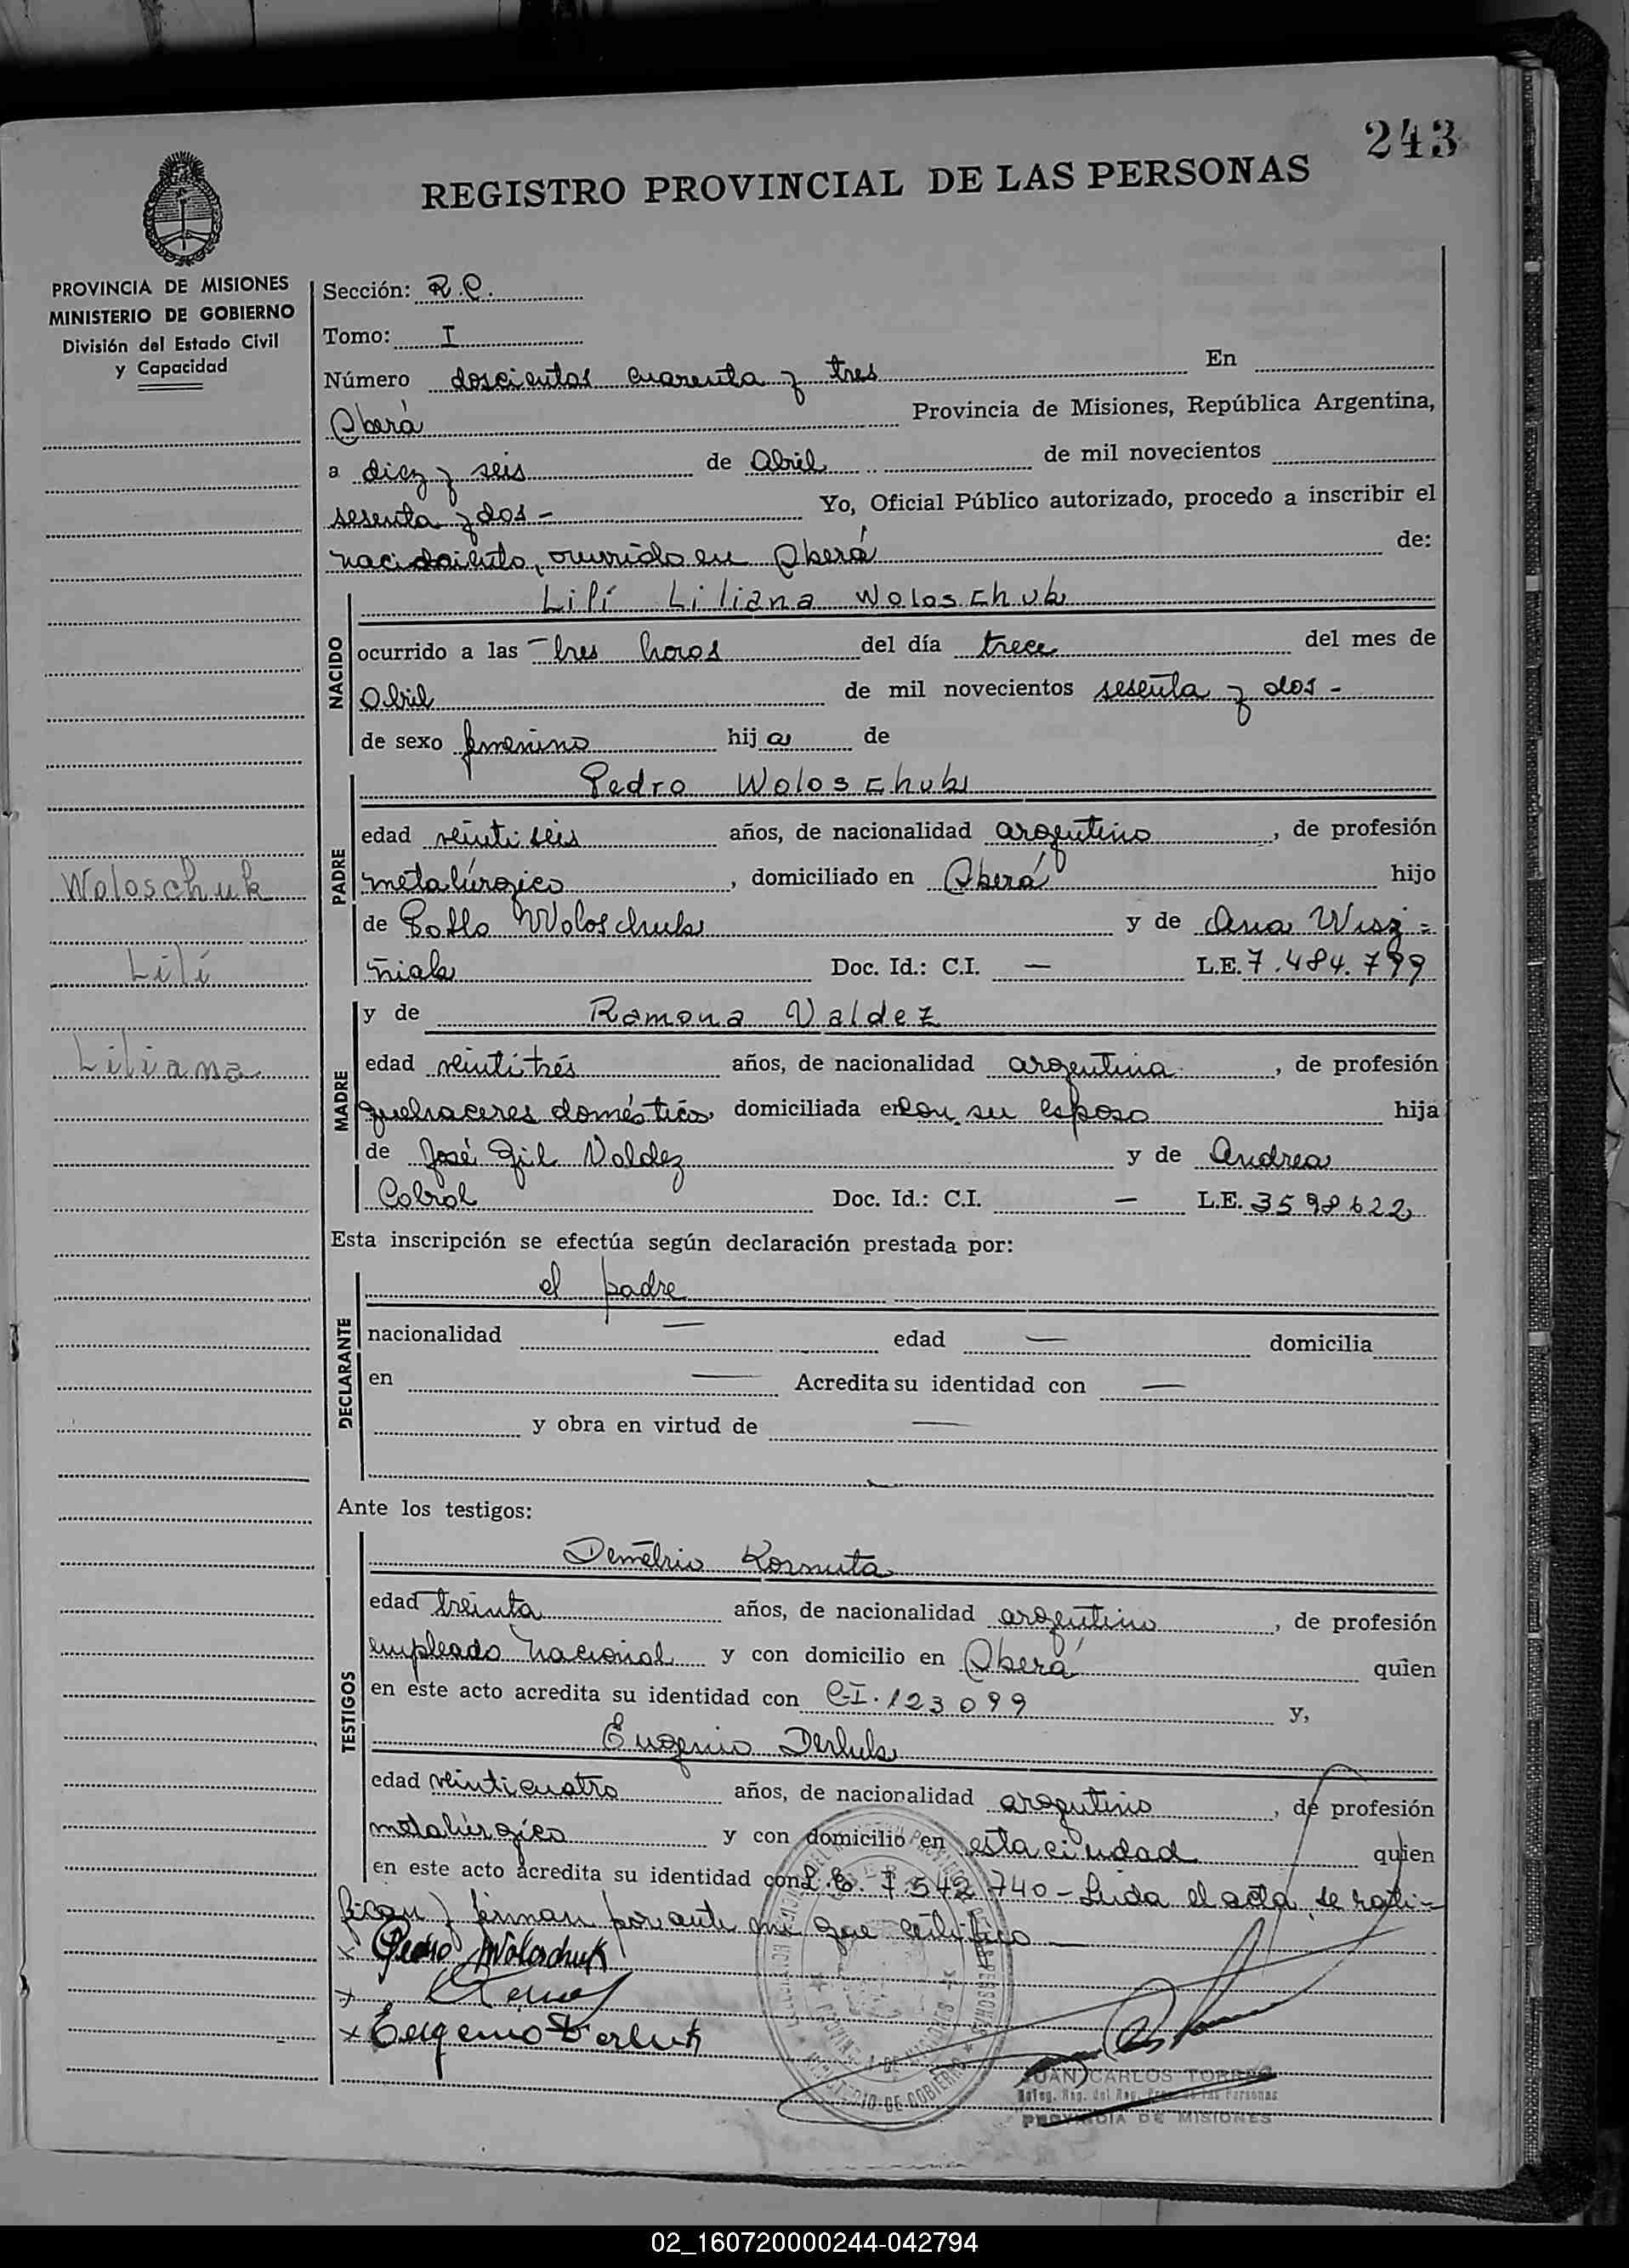 243
REGISTRO PROVINCIAL DE LAS PERSONAS
PROVINCIA DE MISIONES
MINISTERIO DE GOBIERNO
División del Estado Civil
y Capacidad
Sección: R.C.
Tomo: I
Número doscientos cuarenta y tres En
Oberá Provincia de Misiones, República Argentina,
a diez y seis de Abril de mil novecientos
sesenta y dos - Yo, Oficial Público autorizado, procedo a inscribir el
nacimiento, ocurrido en Oberá de:
NACIDO
Lilí Liliana Woloschuk
ocurrido a las tres horas del día trece del mes de
Abril de mil novecientos sesenta y dos -
de sexo femenino hija de
PADRE
Pedro Woloschuk
edad veintiseis años, de nacionalidad argentino, de profesión
metalúrgico, domiciliado en Oberá hijo
de Woloschuk y de Ana Wisz=
niak Doc. Id.: C.I. — L.E. 7.484.799
Woloschuk
Lilí
Liliana
MADRE
y de Ramona Valdez
edad veintitrés años, de nacionalidad argentina, de profesión
quehaceres domésticos domiciliada en con su esposo hija
de José Gil Valdez y de Andrea
Cabral Doc. Id.: C.I. — L.E. 3598622
Esta inscripción se efectúa según declaración prestada por:
DECLARANTE
el padre
nacionalidad — edad — domicilia
en — Acredita su identidad con —
y obra en virtud de —
Ante los testigos:
TESTIGOS
Demetrio Kornuta
edad treinta años, de nacionalidad argentino, de profesión
empleado nacional y con domicilio en Oberá quien
en este acto acredita su identidad con C.I. 123099 y,
Eugenio Derluk
edad veinticuatro años, de nacionalidad argentino, de profesión
metalúrgico y con domicilio en esta ciudad quien
en este acto acredita su identidad con L.E. 7.542.740 - Leida el acta, se rati-
fican y firman por ante mi que certifico —
x Pedro Woloschuk
x
x Eugenio Derluk
JUAN CARLOS TORRES
PROVINCIA DE MISIONES
02_160720000244-042794